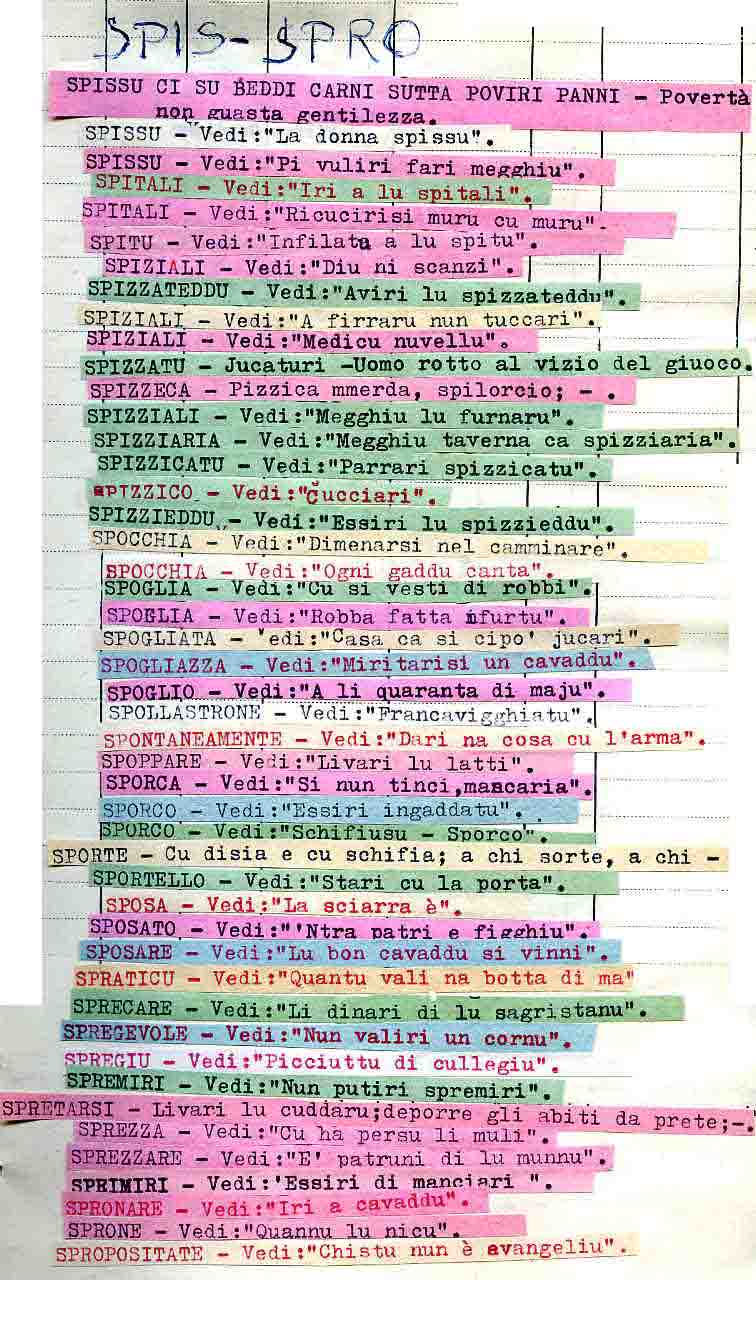 SPIS-SPRO
SPISSU CI SU BEDDI CARNI SUTTA POVIRI PANNI - Povertà
non guasta gentilezza.
SPISSU - Vedi:"La donna spissu".
SPISSU - Vedi:"Pi vuliri fari megghiu".
SPITALI - Vedi:"Iri a lu spitali".
SPITALI - Vedi:"Ricucirisi muru cu muru".
SPITU - Vedi:"Infilata a lu spitu".
SPIZIALI - Vedi:"Diu ni scanzi".
SPIZZATEDDU - Vedi:"Aviri lu spizzateddu".
SPIZIALI - Vedi:"A firraru nun tuccari".
SPIZIALI - Vedi:"Medicu nuvellu".
SPIZZATU - Jucaturi -Uomo rotto al vizio del giuoco.
SPIZZECA - Pizzica mmerda, spilorcio; - .
SPIZZIALI - Vedi:"Megghiu lu furnaru".
SPIZZIARIA - Vedi:"Megghiu taverna ca spizziaria".
SPIZZICATU - Vedi:"Parrari spizzicatu".
SPIZZICO - Vedi:"Cucciari".
SPIZZIEDDU - Vedi:"Essiri lu spizzieddu".
SPOCCHIA - Vedi:"Dimenarsi nel camminare".
SPOCCHIA - Vedi:"Ogni gaddu canta".
SPOGLIA - Vedi:"Cu si vesti di robbi".
SPOGLIA - Vedi:"Robba fatta nfurtu".
SPOGLIATA - edi:"Casa ca si cipo' jucari".
SPOGLIAZZA - Vedi:"Miritarisi un cavaddu".
SPOGLIO - Vedi:"A li quaranta di maju".
SPOLLASTRONE - Vedi:"Francavigghiatu".
SPONTANEAMENTE - Vedi:"Dari na cosa cu l'arma".
SPOPPARE - Vedi:"Livari lu latti".
SPORCA - Vedi:"Si nun tinci,mascaria".
SPORCO - Vedi:"Essiri ingaddatu".
SPORCO - Vedi:"Schifiusu - Sporco".
SPORTE - Cu disia e cu schifia; a chi sorte, a chi -
SPORTELLO - Vedi:"Stari cu la porta".
SPOSA - Vedi:"La sciarra è".
SPOSATO - Vedi:"'Ntra patri e figghiu".
SPOSARE - Vedi:"Lu bon cavaddu si vinni".
SPRATICU - Vedi:"Quantu vali na botta di ma"
SPRECARE - Vedi:"Li dinari di lu sagristanu".
SPREGEVOLE - Vedi:"Nun valiri un cornu".
SPREGIU - Vedi:"Picciuttu di cullegiu".
SPREMIRI - Vedi:"Nun putiri spremiri".
SPRETARSI - Livari lu cuddaru;deporre gli abiti da prete;-.
SPREZZA - Vedi:"Cu ha persu li muli".
SPREZZARE - Vedi:"E' patruni di lu munnu".
SPRIMIRI - Vedi:'Essiri di manciari ".
SPRONARE - Vedi:"Iri a cavaddu".
SPRONE - Vedi:"Quannu lu nicu".
SPROPOSITATE - Vedi:"Chistu nun è avangeliu".